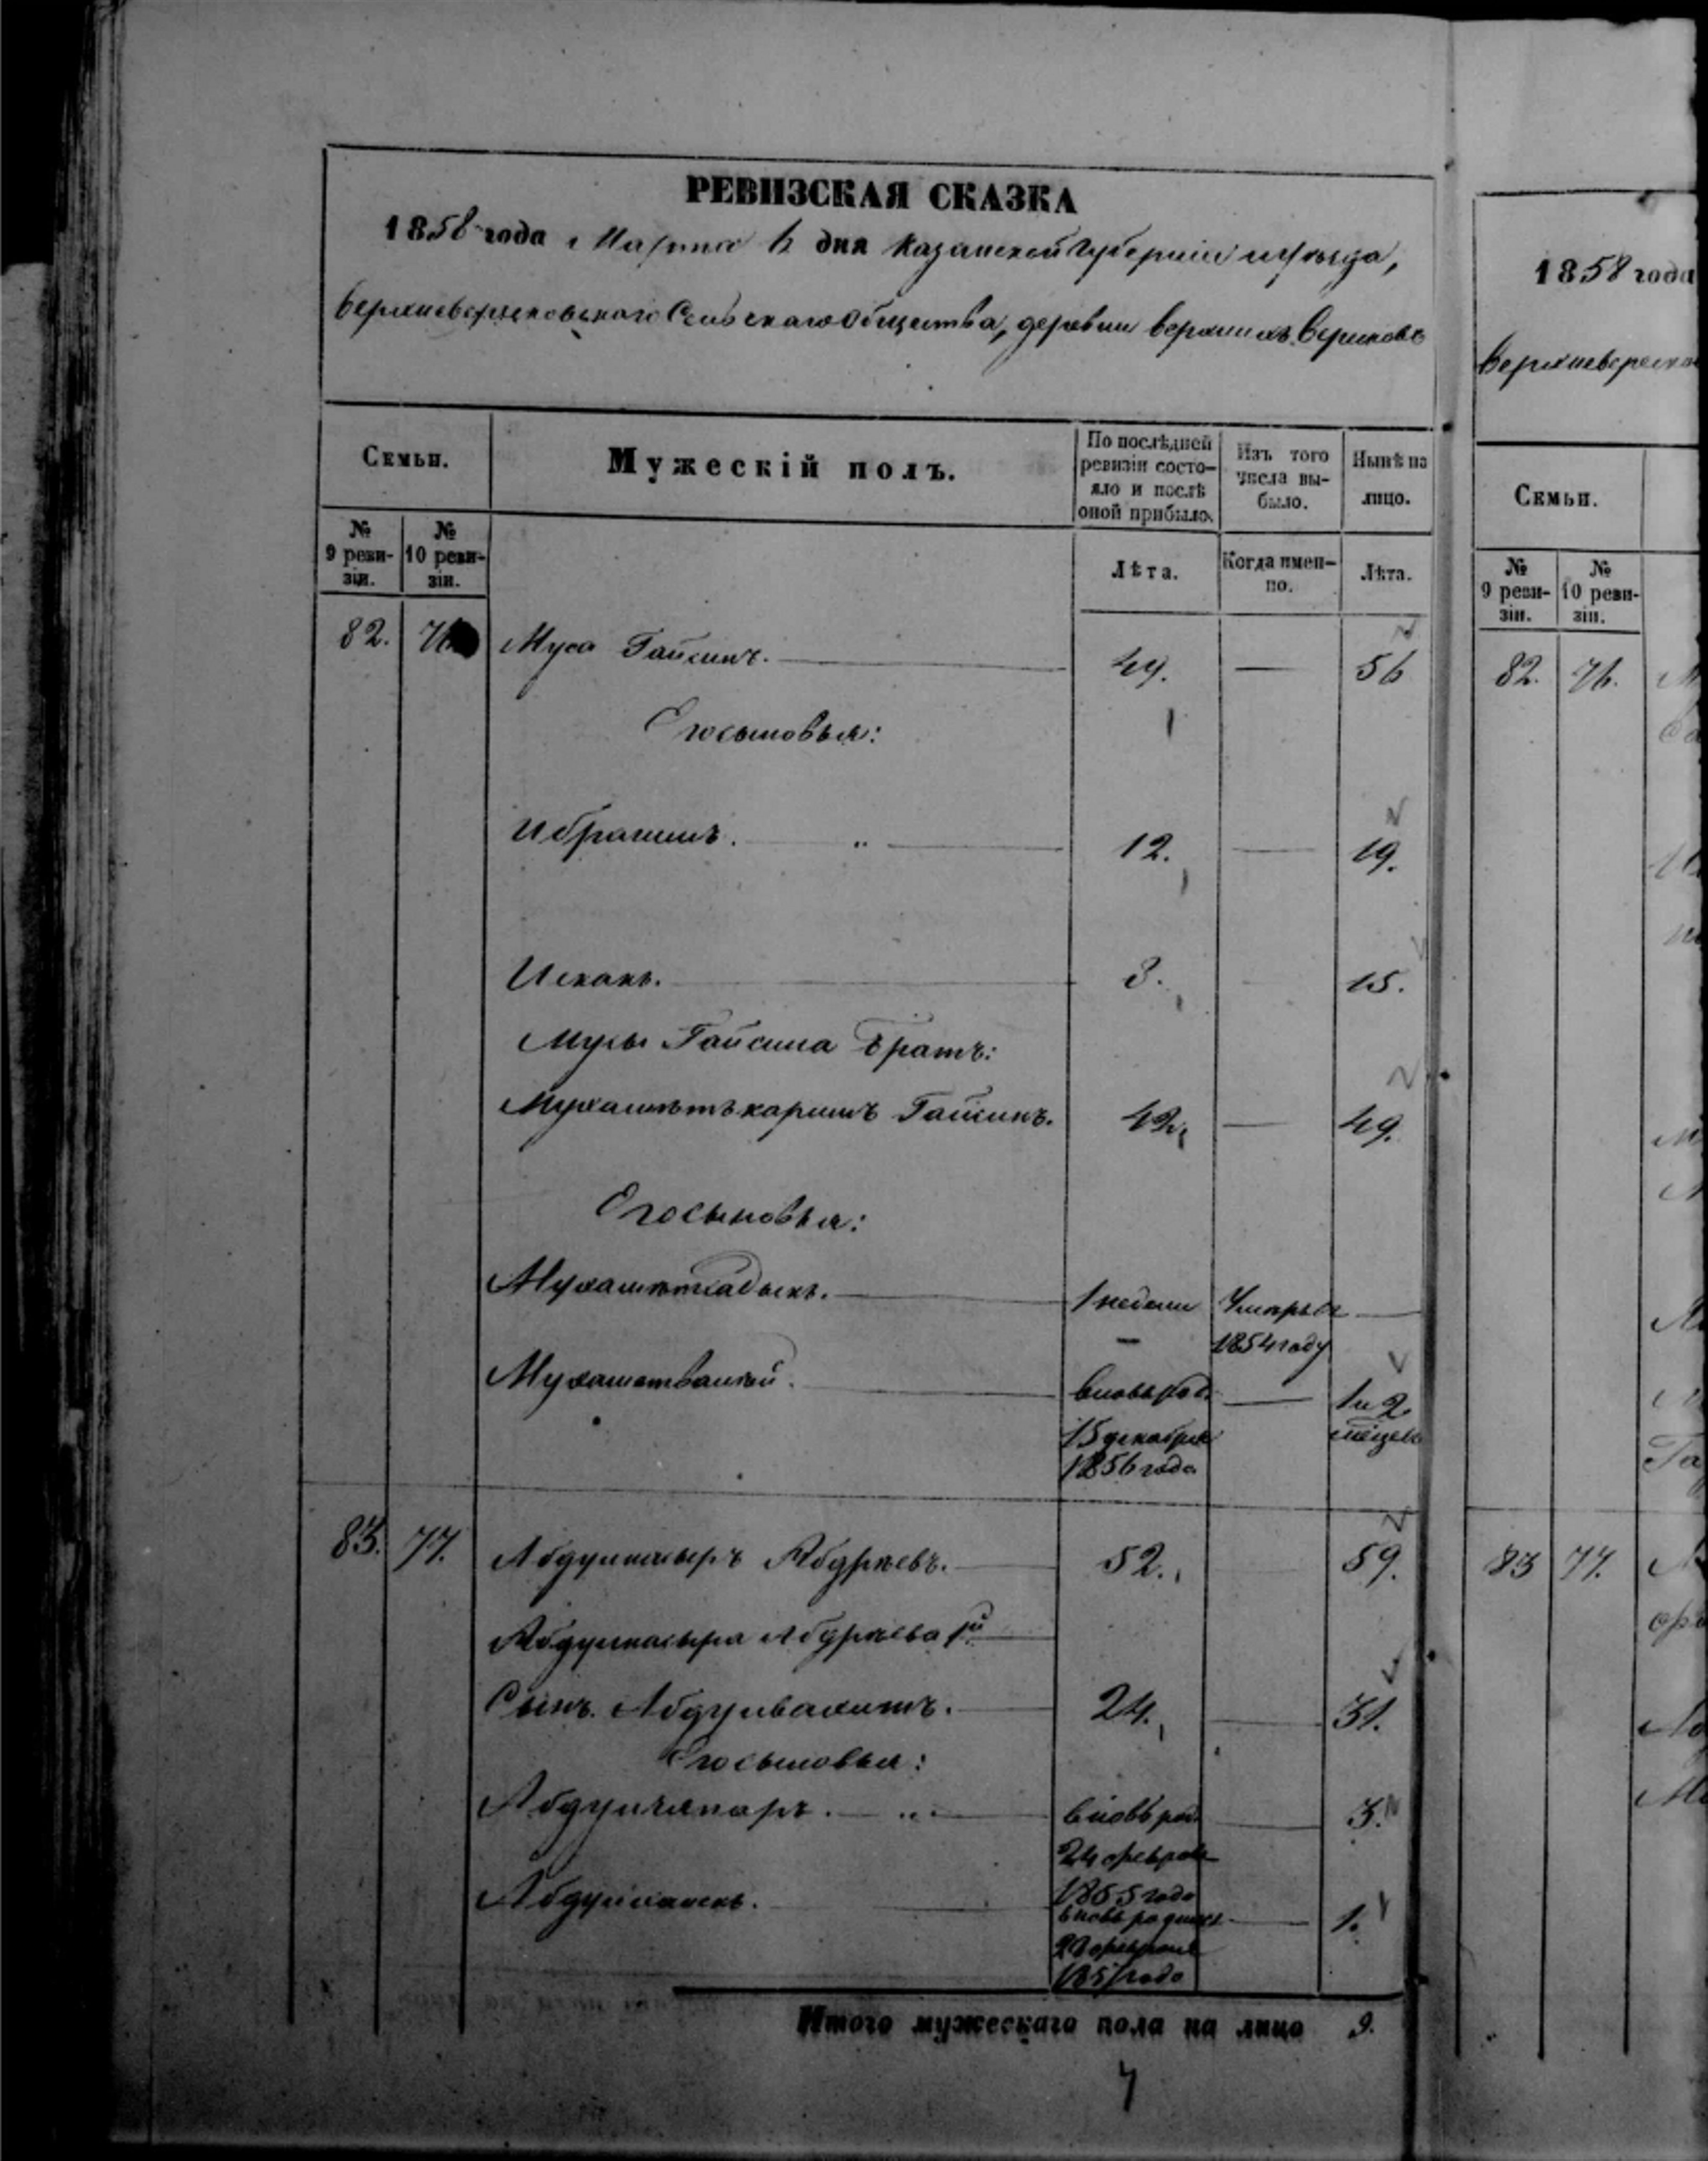 РЕВИЗСКАЯ СКАЗКА
1858 года Марта 6 дня Казанской Губерніи и уѣзда,
Верхневерезковскаго Сельскаго Общества, деревни Верхнихъ
Семьи.
Мужескій полъ.
По послѣдней ревизіи состо-
яло и послѣ
оной прибыло.
Изъ того
числа вы-
было.
Нынѣ на
лицо.
№
9 реви-
зіи.
№
10 реви-
зіи.
Лѣта.
Когда имен-
но.
Лѣта.
82. 76 Муса Гайсинъ. 49. — 56
Его сыновья:
Ибрагимъ. „ 12. — 19.
Исхакъ. 8. 15.
Мусы Гайсина братъ:
Мухаметъкаримъ Гайсинъ. 42. — 49.
Его сыновья:
Мухаметсадыкъ. 1 недели Умеръ въ
— 1854 году
Мухаметвалей. вновь род. — 1 и 2
15 декабря мѣсец
1856 года
83. 77. Абдулнасыръ Абдряевъ. 52. 59.
Абдулнасыра Абдряева 1й
Сынъ. Абдулвахитъ. 24. 31.
Его сыновья:
Абдулчапаръ. „ вновь род. 3.
24 феврал
1855 года
вновь родился 1.
февраля
1857 года
Итого мужескаго пола на лицо 9.
1858 года
Семьи.
№
9 реви-
зіи.
№
10 реви-
зіи.
82. 76.
83 77.